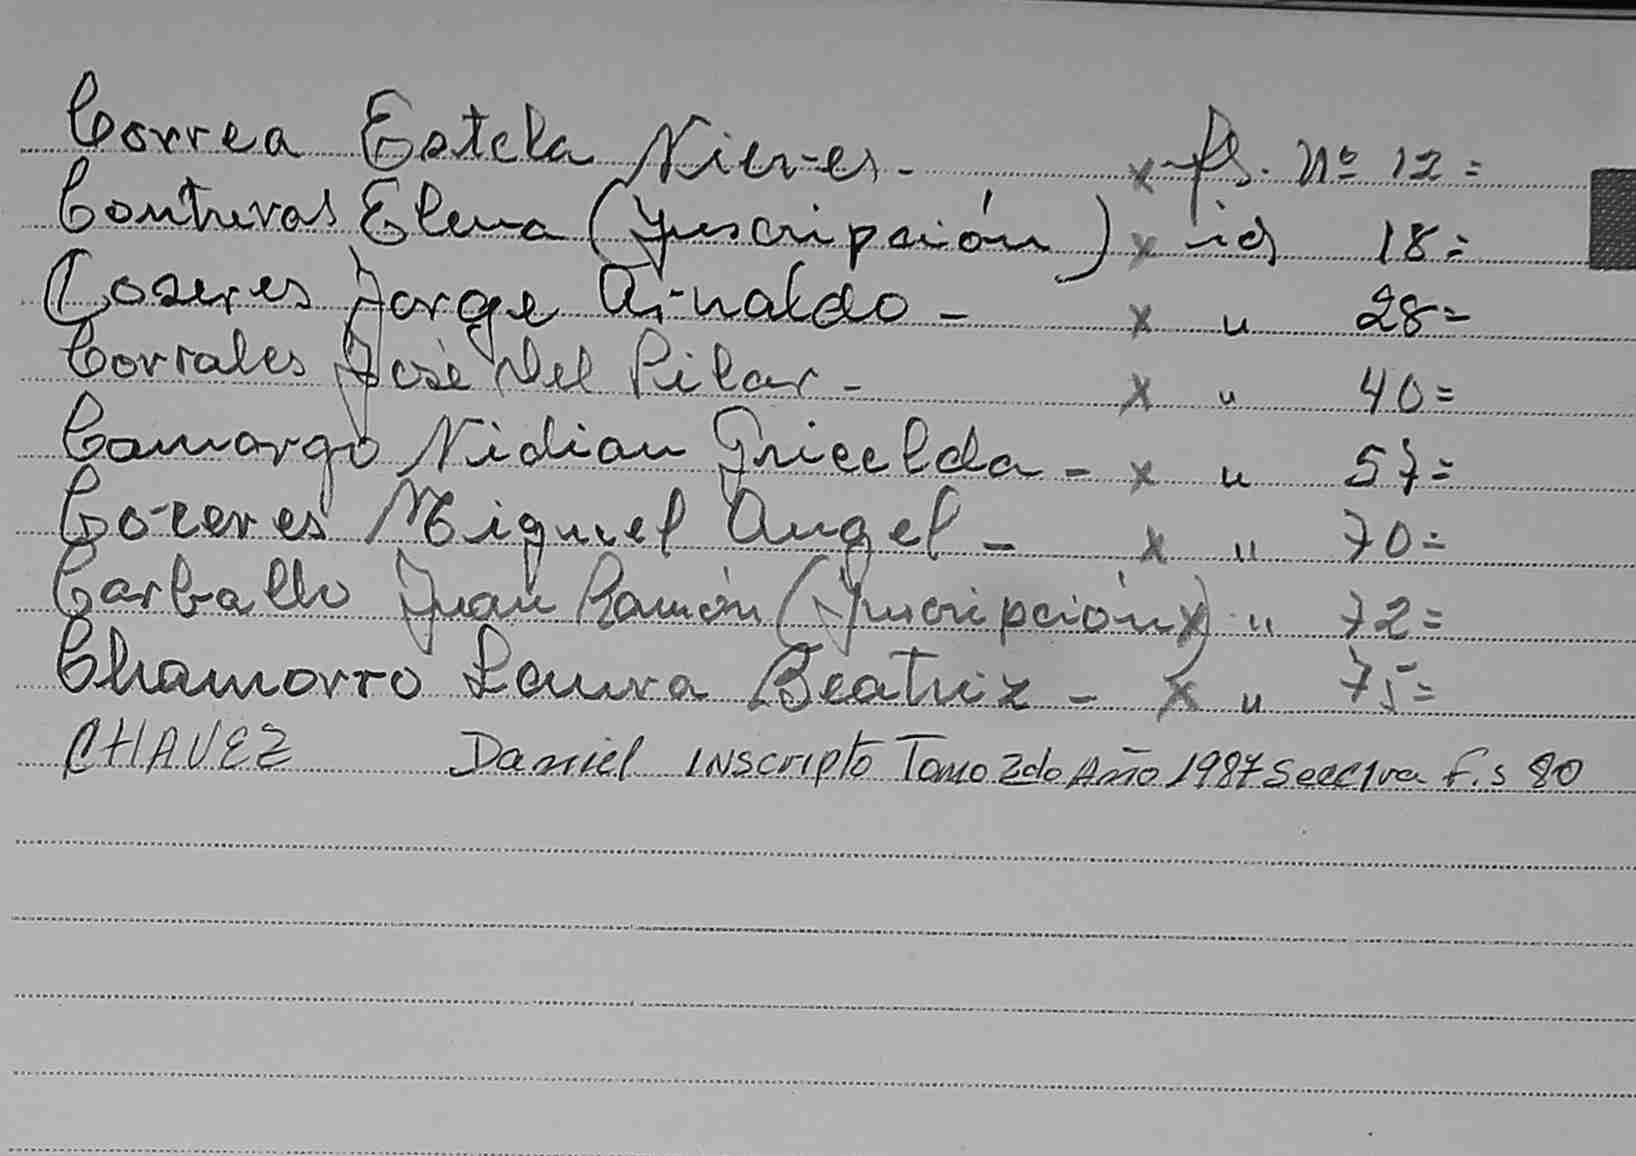 Correa Estela Nieves - x fs. Nº 12=
Contreras Elena (Inscripción) x id 18=
Coseres Jorge Arnaldo - x " 28=
Corrales José Del Pilar - x " 40=
Camargo Nidian Gricelda - x " 57=
Coceres Miguel Angel - x " 70=
Carballo Juan Ramón (Inscripción x) " 72=
Chamorro Laura Beatriz - x " 75=
CHAVEZ Daniel INscripto Tomo 2do Año 1987 Secc 1ra F.s 80